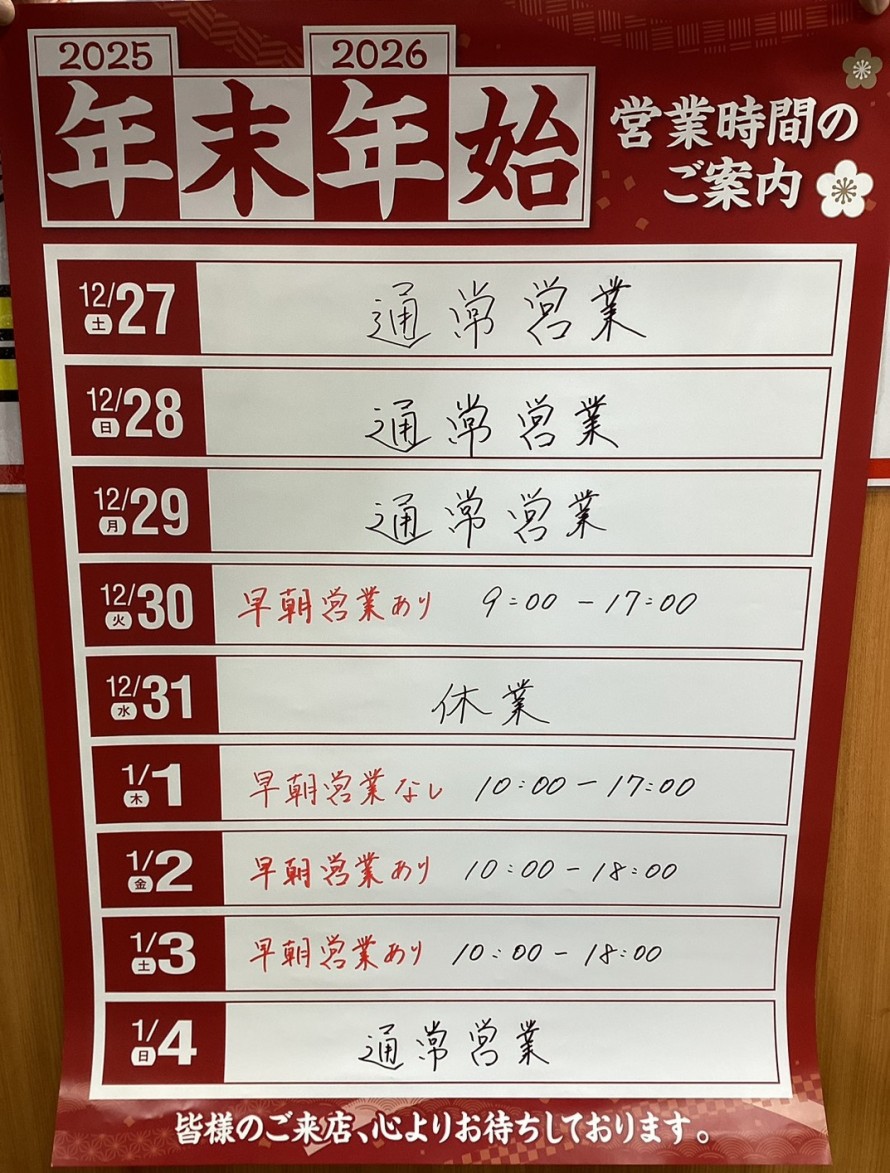 2025 2026
年末年始
営業時間の
ご案内
12/27 土 通常営業
12/28 日 通常営業
12/29 月 通常営業
12/30 火 早朝営業あり 9:00-17:00
12/31 水 休業
1/1 木 早朝営業なし 10:00-17:00
1/2 金 早朝営業あり 10:00-18:00
1/3 土 早朝営業あり 10:00-18:00
1/4 日 通常営業
皆様のご来店、心よりお待ちしております。